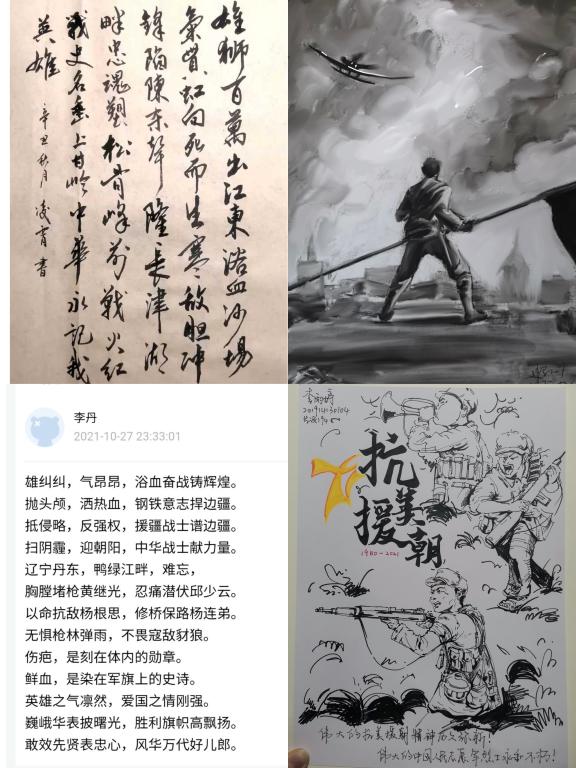 雄獅百萬出江東浴血沙場
氣貫虹向死而生寒敵胆冲
鋒陷陳杀聲隆長津湖
畔忠魂塑松骨峰前戰火紅
戰史名垂上甘岭中華永記我
英雄
辛丑秋月 凌霄書
李丹
2021-10-27 23:33:01
雄纠纠，气昂昂，浴血奋战铸辉煌。
抛头颅，洒热血，钢铁意志捍边疆。
抵侵略，反强权，援疆战士谱边疆。
扫阴霾，迎朝阳，中华战士献力量。
辽宁丹东，鸭绿江畔，难忘，
胸膛堵枪黄继光，忍痛潜伏邱少云。
以命抗敌杨根思，修桥保路杨连弟。
无惧枪林弹雨，不畏寇敌豺狼。
伤疤，是刻在体内的勋章。
鲜血，是染在军旗上的史诗。
英雄之气凛然，爱国之情刚强。
巍峨华表披曙光，胜利旗帜高飘扬。
敢效先贤表忠心，风华万代好儿郎。
201914130104
抗美
援朝
伟大的抗美援朝精神历久弥新！
伟大的中国人民志愿军烈士永垂不朽！